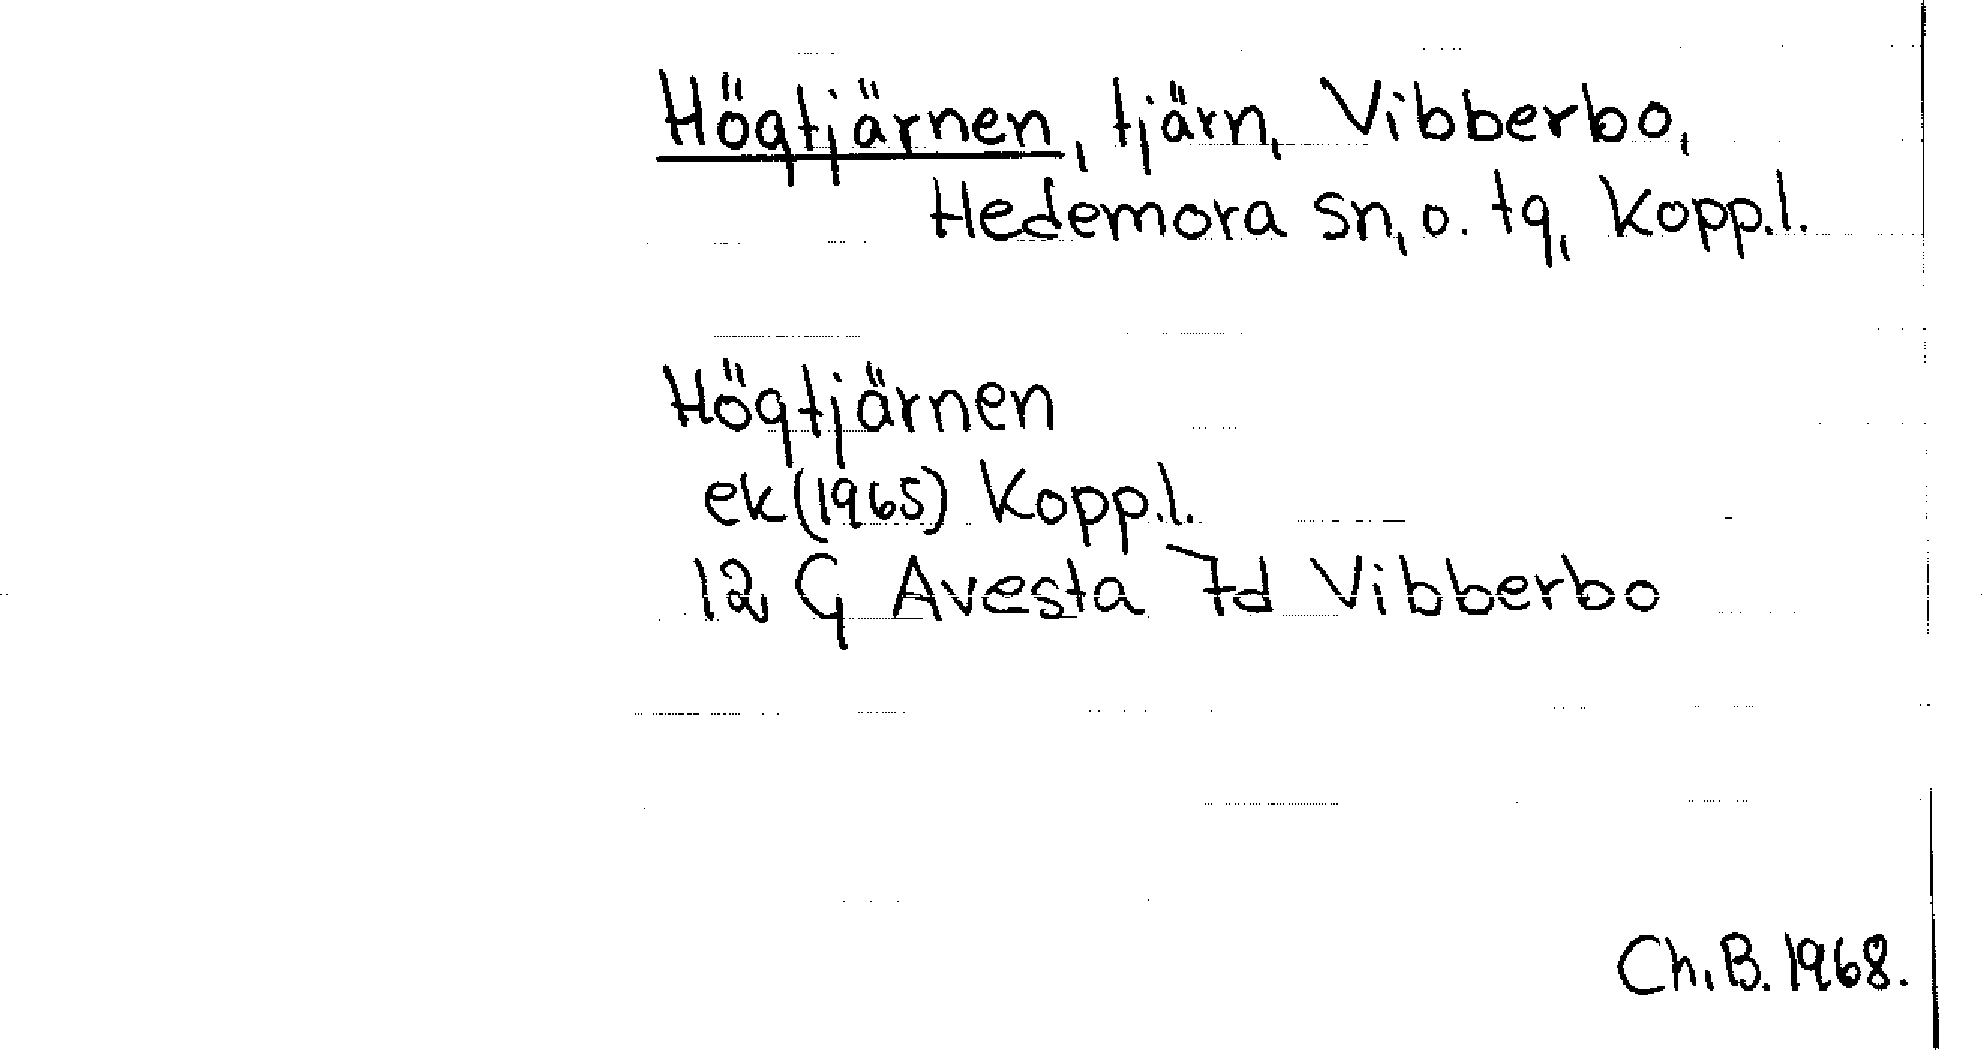 Högtjärnen, tjärn, Vibberbo,
Hedemora sn, o. tg, Kopp.l.
Högtjärnen
ek (1965) Kopp.l.
12 G Avesta 7d Vibberbo
Ch. B. 1968.